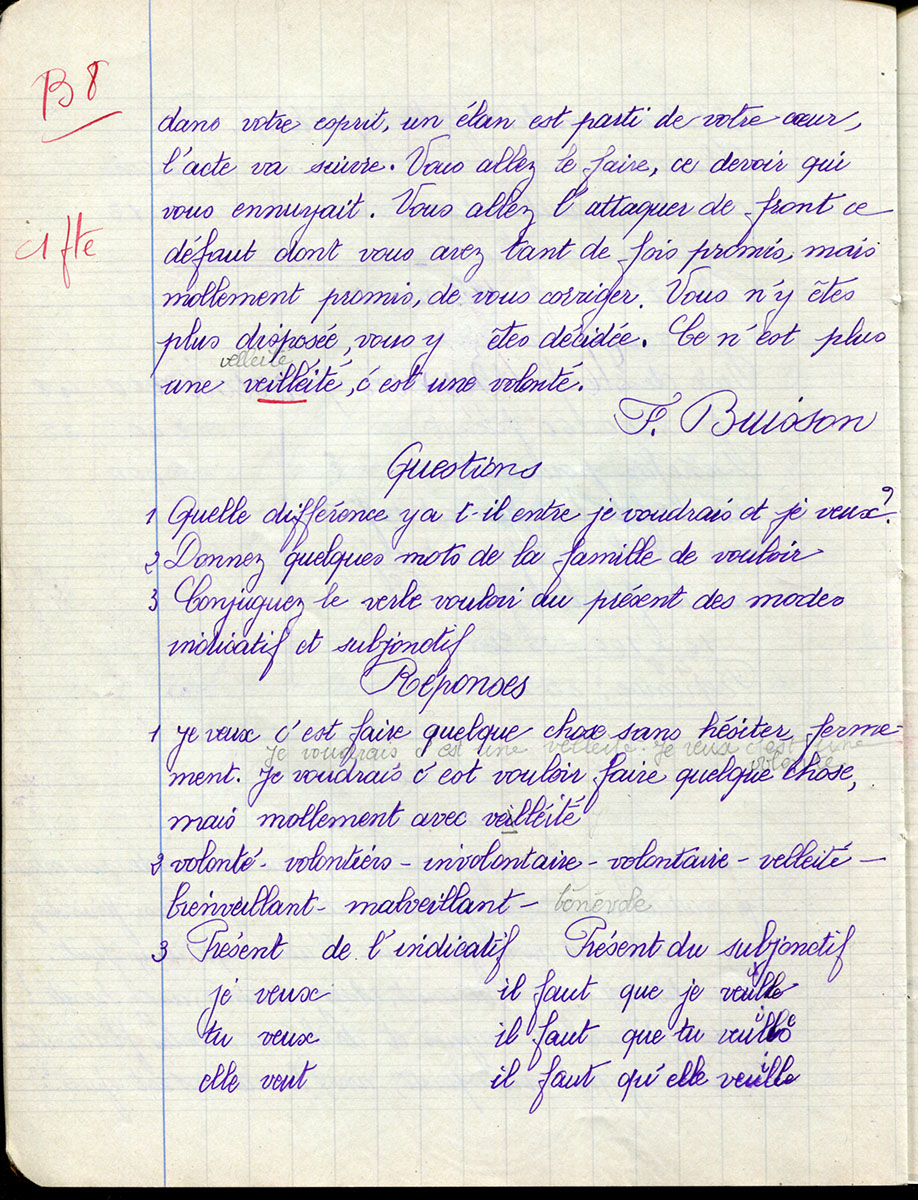 B 8
dans votre esprit, un élan est parti de votre cœur,
l'acte va suivre. Vous allez le faire, ce devoir qui
vous ennuyait. Vous allez l'attaquer de front ce
1 fte
défaut dont vous avez tant de fois promis, mais
mollement promis, de vous corriger. Vous n'y êtes
plus disposée, vous y êtes décidée. Ce n'est plus
velléité
une veilléité, c'est une volonté.
F. Buisson
Questions
1 Quelle différence y a t-il entre je voudrais et je veux?
2 Donnez quelques mots de la famille de vouloir
3 Conjuguez le verbe vouloir au présent des modes
indicatif et subjonctif
Réponses
1 Je veux c'est faire quelque chose sans hésiter, ferme-
Je voudrais c'est une velléité. Je veux c'est une
volonté
ment. Je voudrais c'est vouloir faire quelque chose,
mais mollement avec veilléité
2 volonté - volontiers - involontaire - volontaire - velleité -
bienveillant - malveillant - bénévole
3 Présent de l'indicatif Présent du subjonctif
je veux il faut que je veuille
tu veux il faut que tu veuilles
elle veut il faut qu'elle veuille